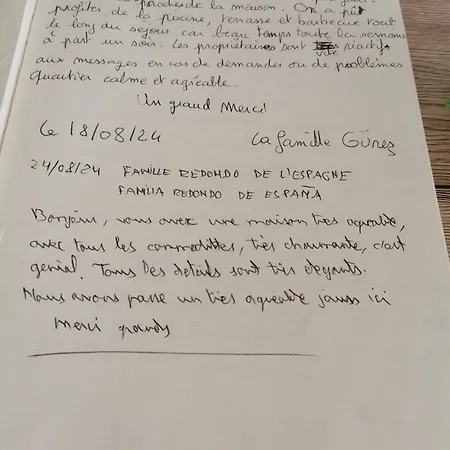 proches de la maison. On a pu
profiter de la piscine, terrasse et barbecue tout
le long du sejour car beau temps toute la semaine
à part un soir. les propriétaires sont réactifs
aux messages en cas de demandes ou de problèmes
quartier calme et agréable.
Un grand Merci
Le 18/08/24 La famille Güneş
24/08/24 FAMILLE REDONDO DE L'ESPAGNE
FAMILIA REDONDO DE ESPAÑA
Bonjour, vous avez une maison très agréable,
avec tous les commodittes, très charmante, c'est
genial. Tous les details sont très elegants.
Nous avons passe un très agréable ici
Merci